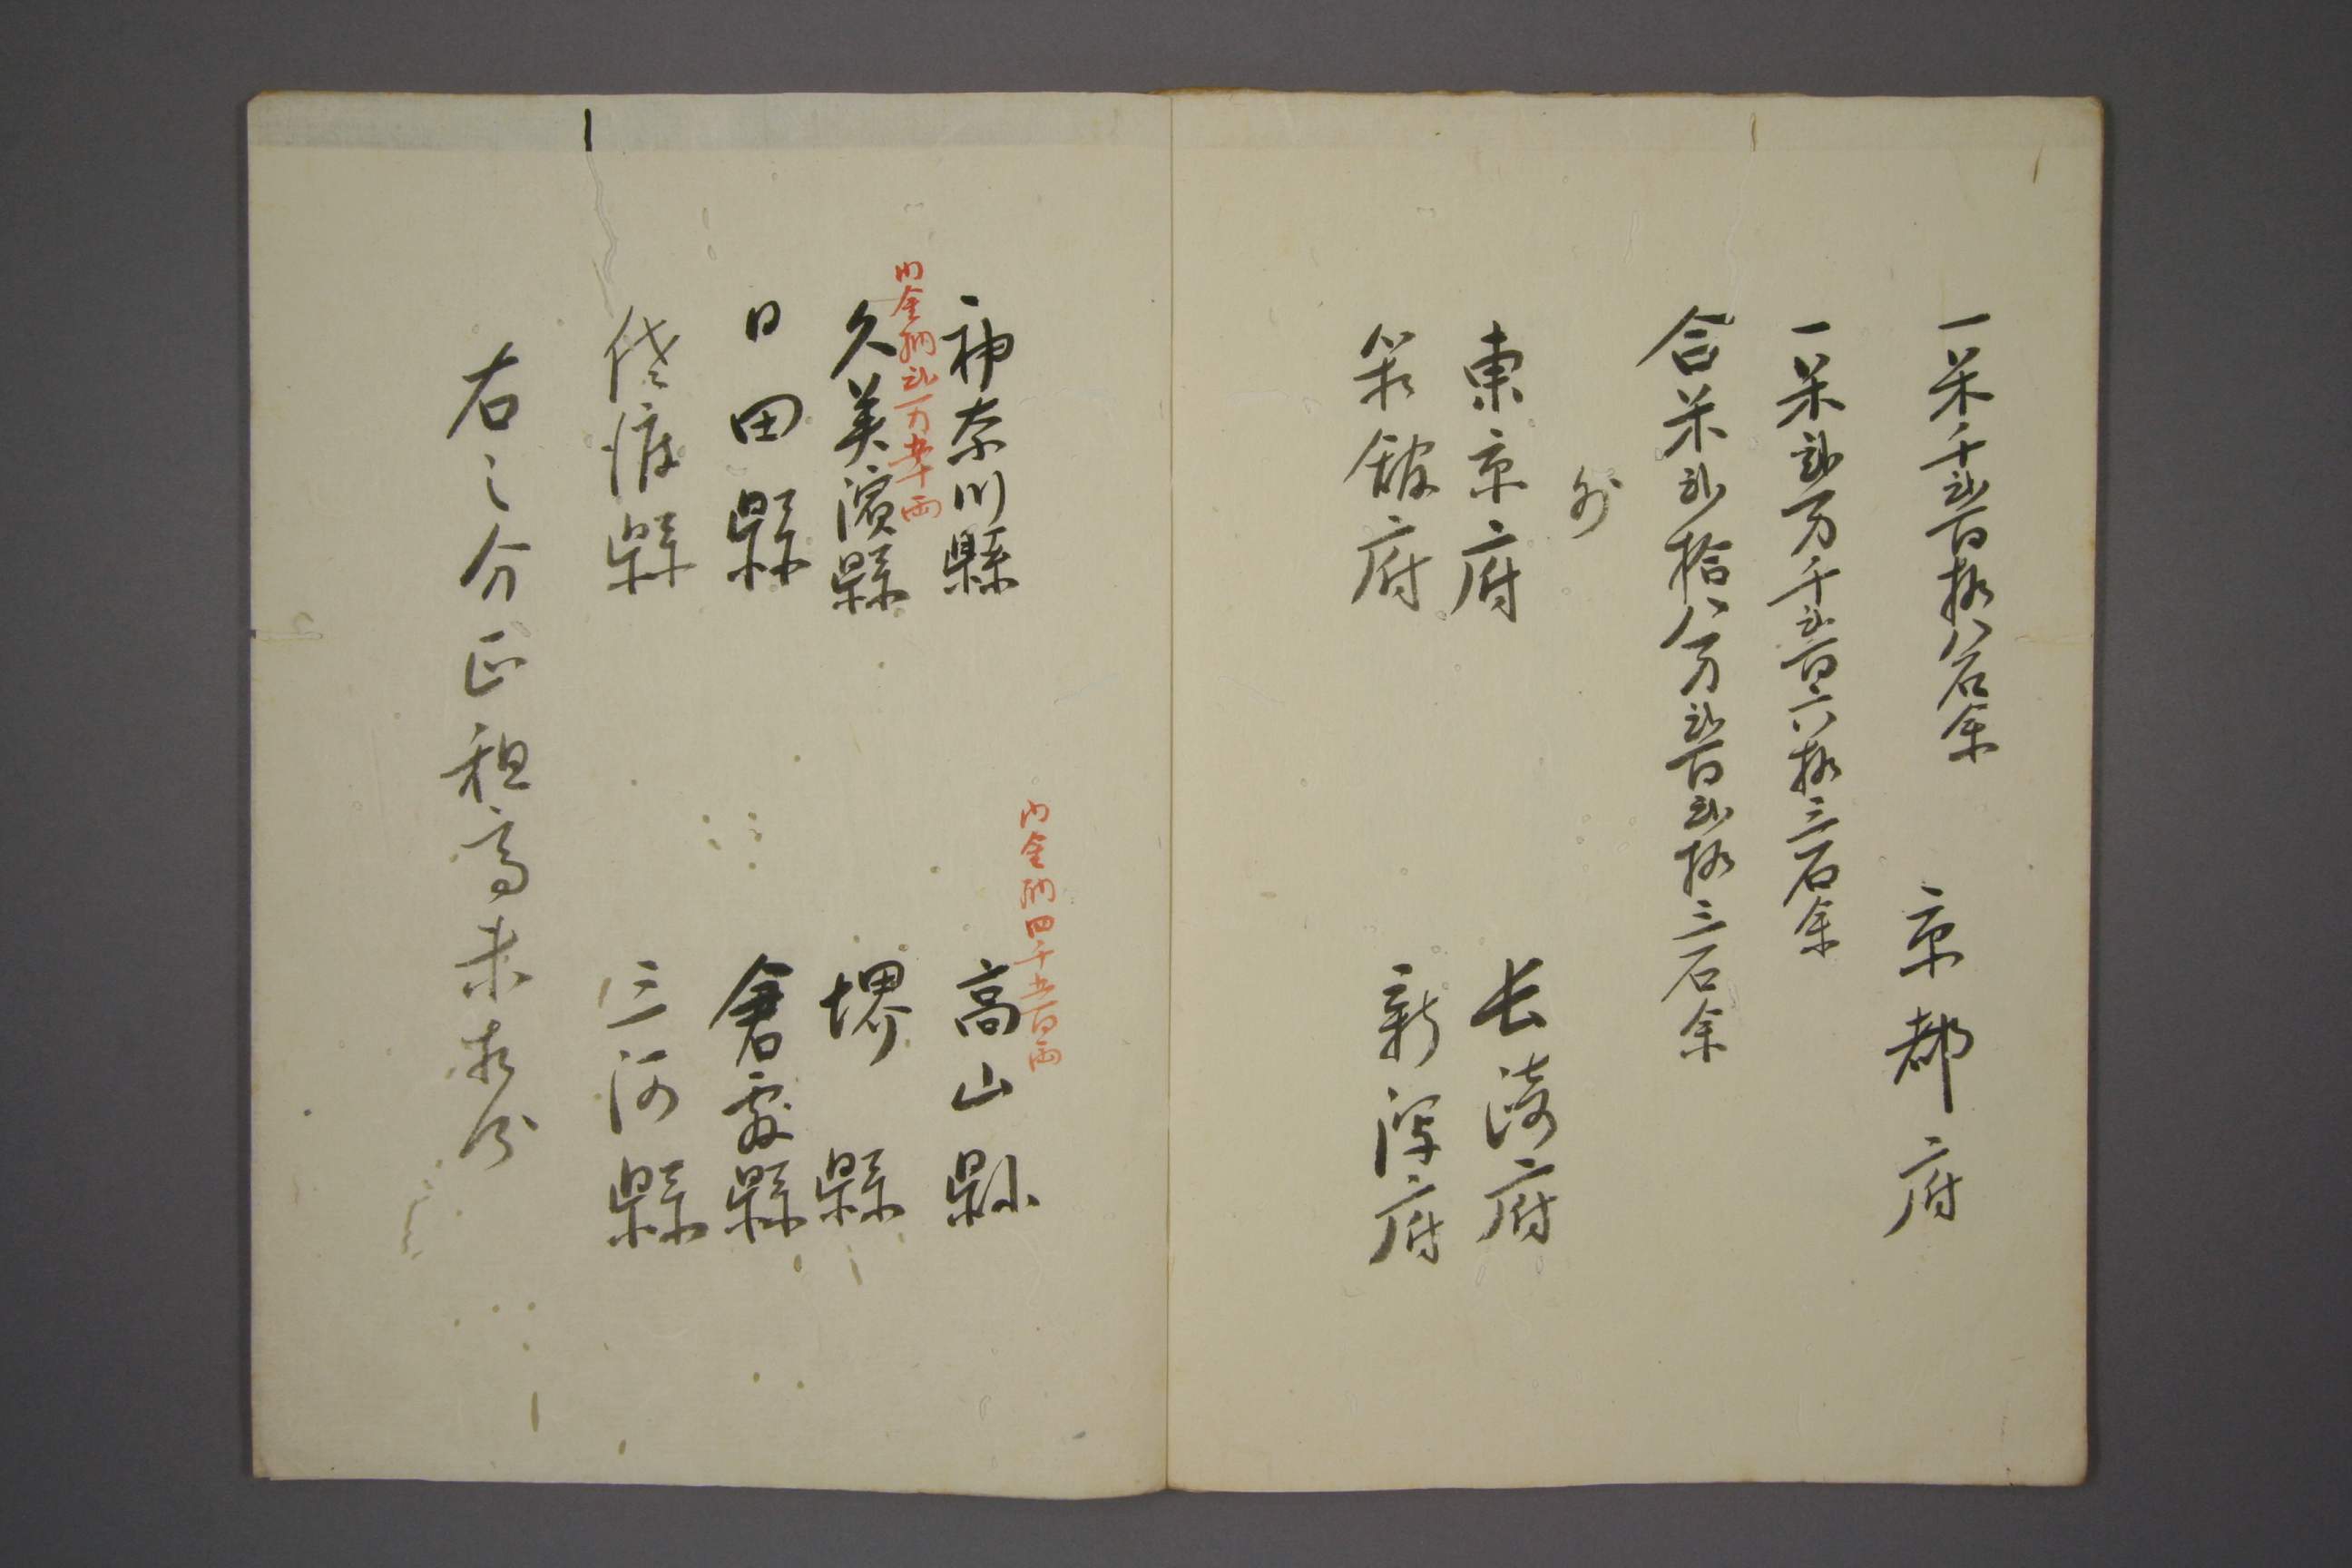 一米千弐百拾八石余　京都府
一米弐万千弐百六拾三石余
合米弐拾八万弐百弐拾三石余
外
東京府　長崎府
箱館府　新潟府
神奈川縣　高山縣
内金納四千五百両
久美濱縣　堺縣
内金納弐万五千両
日田縣　倉敷縣
佐渡縣　三河縣
右之分正租高未相分